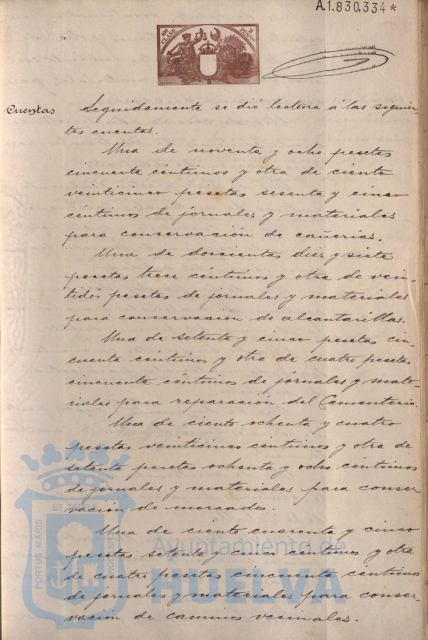 A.1.830.334*
Cuentas
Seguidamente se dió lectura á las siguien-
tes cuentas.
Una de noventa y ocho pesetas
cincuenta céntimos y otra de ciento
veinticinco pesetas sesenta y cinco
céntimos de jornales y materiales
para conservación de cañerías.
Una de doscientas diez y siete
pesetas trece céntimos y otra de vein-
tidós pesetas de jornales y materiales
para conservación de alcantarillas.
Una de setenta y cinco pesetas cin-
cuenta céntimos y otra de cuatro pesetas
cincuenta céntimos de jornales y mate-
riales para reparación del Cementerio.
Una de ciento ochenta y cuatro
pesetas veinticinco céntimos y otra de
setenta pesetas ochenta y ocho céntimos
de jornales y materiales para conser-
vación de mercados.
Una de ciento cuarenta y cinco
pesetas setenta y cinco céntimos y otra
de cuatro pesetas cincuenta céntimos
de jornales y materiales para conser-
vación de caminos vecinales.
PORTUS MARIS
Ayuntamiento de
HUELVA